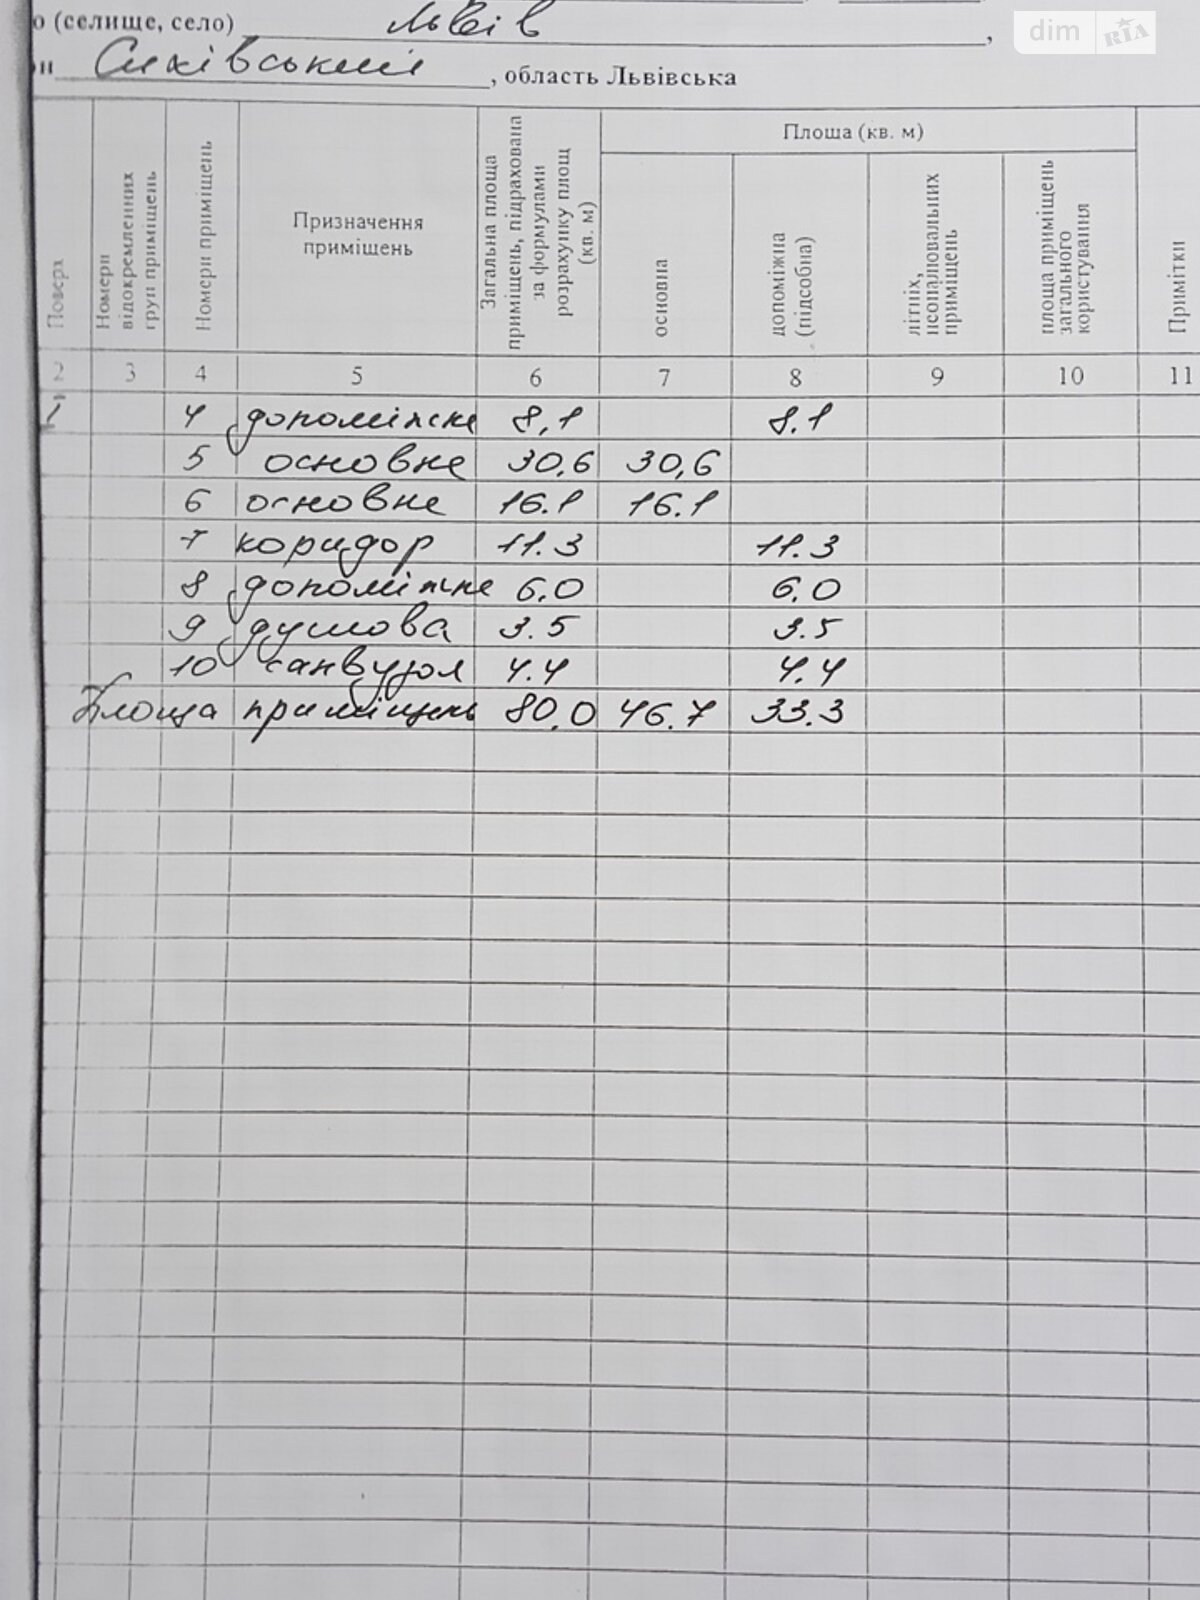 о (селище, село) Львів ,
dim RIA
он Сихівський , область Львівська
Поверх
Номери відокремлених груп приміщень
Номери приміщень
Призначення приміщень
Загальна площа приміщень, підрахована за формулами розрахунку площ (кв. м)
Площа (кв. м)
основна
допоміжна (підсобна)
літніх, неопалювальних приміщень
площа приміщень загального користування
Примітки
2 3 4 5 6 7 8 9 10 11
I 4 допоміжне 8,1 8.1
5 основне 30,6 30,6
6 основне 16.1 16.1
7 коридор 11.3 11.3
8 допоміжне 6,0 6,0
9 душова 3.5 3.5
10 санвузол 4.4 4.4
Площа приміщень 80,0 46.7 33.3